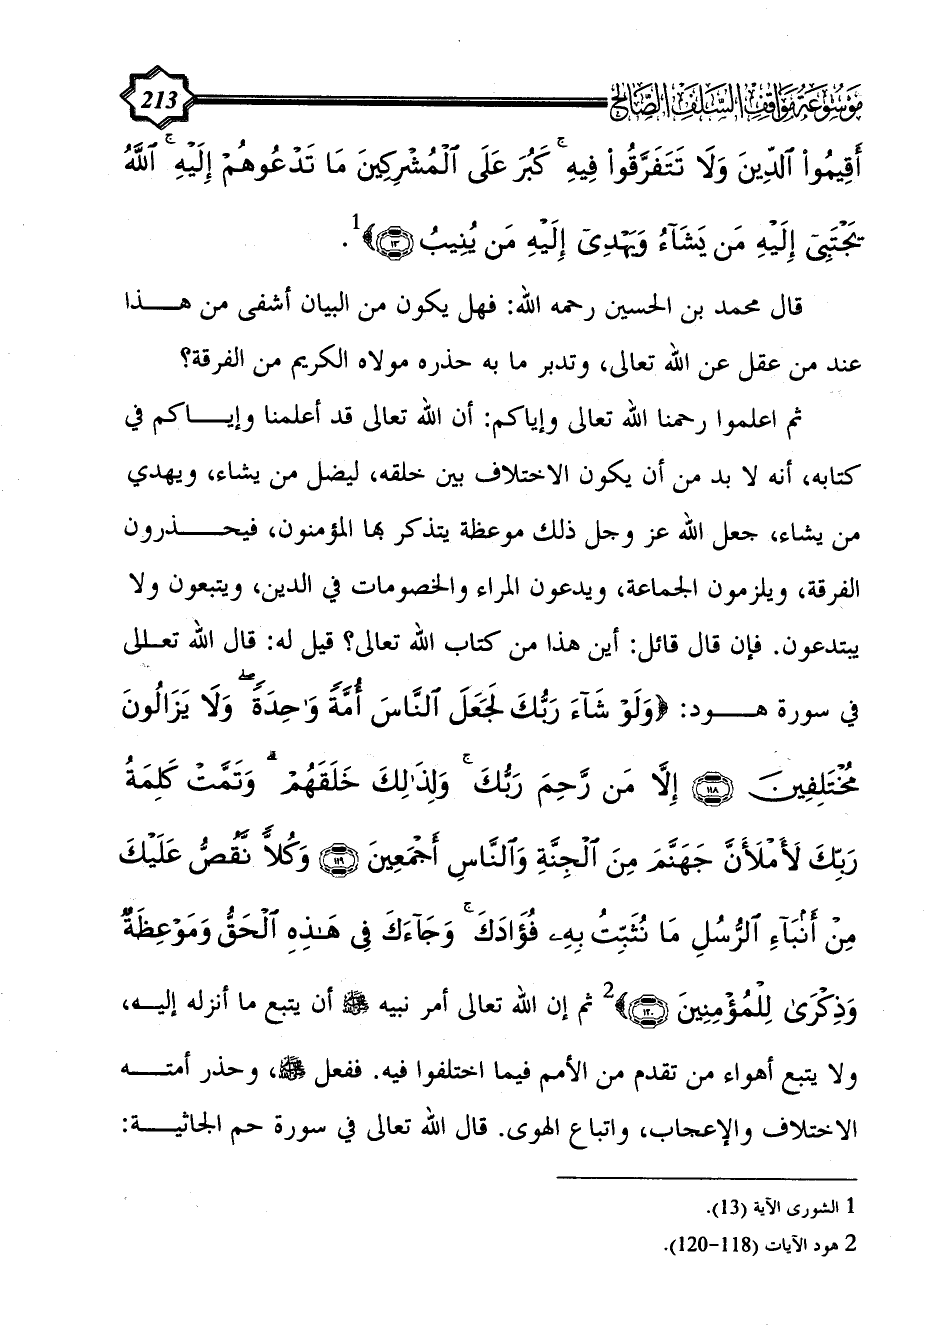 موسوعة مواقف السلف الصالح
213
أَقِيمُوا۟ ٱلدِّينَ وَلَا تَتَفَرَّقُوا۟ فِيهِ ۚ كَبُرَ عَلَى ٱلْمُشْرِكِينَ مَا تَدْعُوهُمْ إِلَيْهِ ۚ ٱللَّهُ
يَجْتَبِىٓ إِلَيْهِ مَن يَشَآءُ وَيَهْدِىٓ إِلَيْهِ مَن يُنِيبُ ﴿١٣﴾ ﴾1.
قال محمد بن الحسين رحمه الله: فهل يكون من البيان أشفى من هـــذا
عند من عقل عن الله تعالى، وتدبر ما به حذره مولاه الكريم من الفرقة؟
ثم اعلموا رحمنا الله تعالى وإياكم: أن الله تعالى قد أعلمنا وإيـــاكم في
كتابه، أنه لا بد من أن يكون الاختلاف بين خلقه، ليضل من يشاء، ويهدي
من يشاء، جعل الله عز وجل ذلك موعظة يتذكر بها المؤمنون، فيحـــذرون
الفرقة، ويلزمون الجماعة، ويدعون المراء والخصومات في الدين، ويتبعون ولا
يبتدعون. فإن قال قائل: أين هذا من كتاب الله تعالى؟ قيل له: قال الله تعـالى
في سورة هـــود: ﴿وَلَوْ شَآءَ رَبُّكَ لَجَعَلَ ٱلنَّاسَ أُمَّةً وَٰحِدَةً ۖ وَلَا يَزَالُونَ
مُخْتَلِفِينَ ﴿١١٨﴾ إِلَّا مَن رَّحِمَ رَبُّكَ ۚ وَلِذَٰلِكَ خَلَقَهُمْ ۗ وَتَمَّتْ كَلِمَةُ
رَبِّكَ لَأَمْلَأَنَّ جَهَنَّمَ مِنَ ٱلْجِنَّةِ وَٱلنَّاسِ أَجْمَعِينَ ﴿١١٩﴾ وَكُلًّا نَّقُصُّ عَلَيْكَ
مِنْ أَنۢبَآءِ ٱلرُّسُلِ مَا نُثَبِّتُ بِهِۦ فُؤَادَكَ ۚ وَجَآءَكَ فِى هَٰذِهِ ٱلْحَقُّ وَمَوْعِظَةٌ
وَذِكْرَىٰ لِلْمُؤْمِنِينَ ﴿١٢٠﴾ ﴾2 ثم إن الله تعالى أمر نبيه ﷺ أن يتبع ما أنزله إليـه،
ولا يتبع أهواء من تقدم من الأمم فيما اختلفوا فيه. ففعل ﷺ، وحذر أمتـــه
الاختلاف والإعجاب، واتباع الهوى. قال الله تعالى في سورة حم الجاثيـــة:
1 الشورى الآية (13).
2 هود الآيات (118-120).